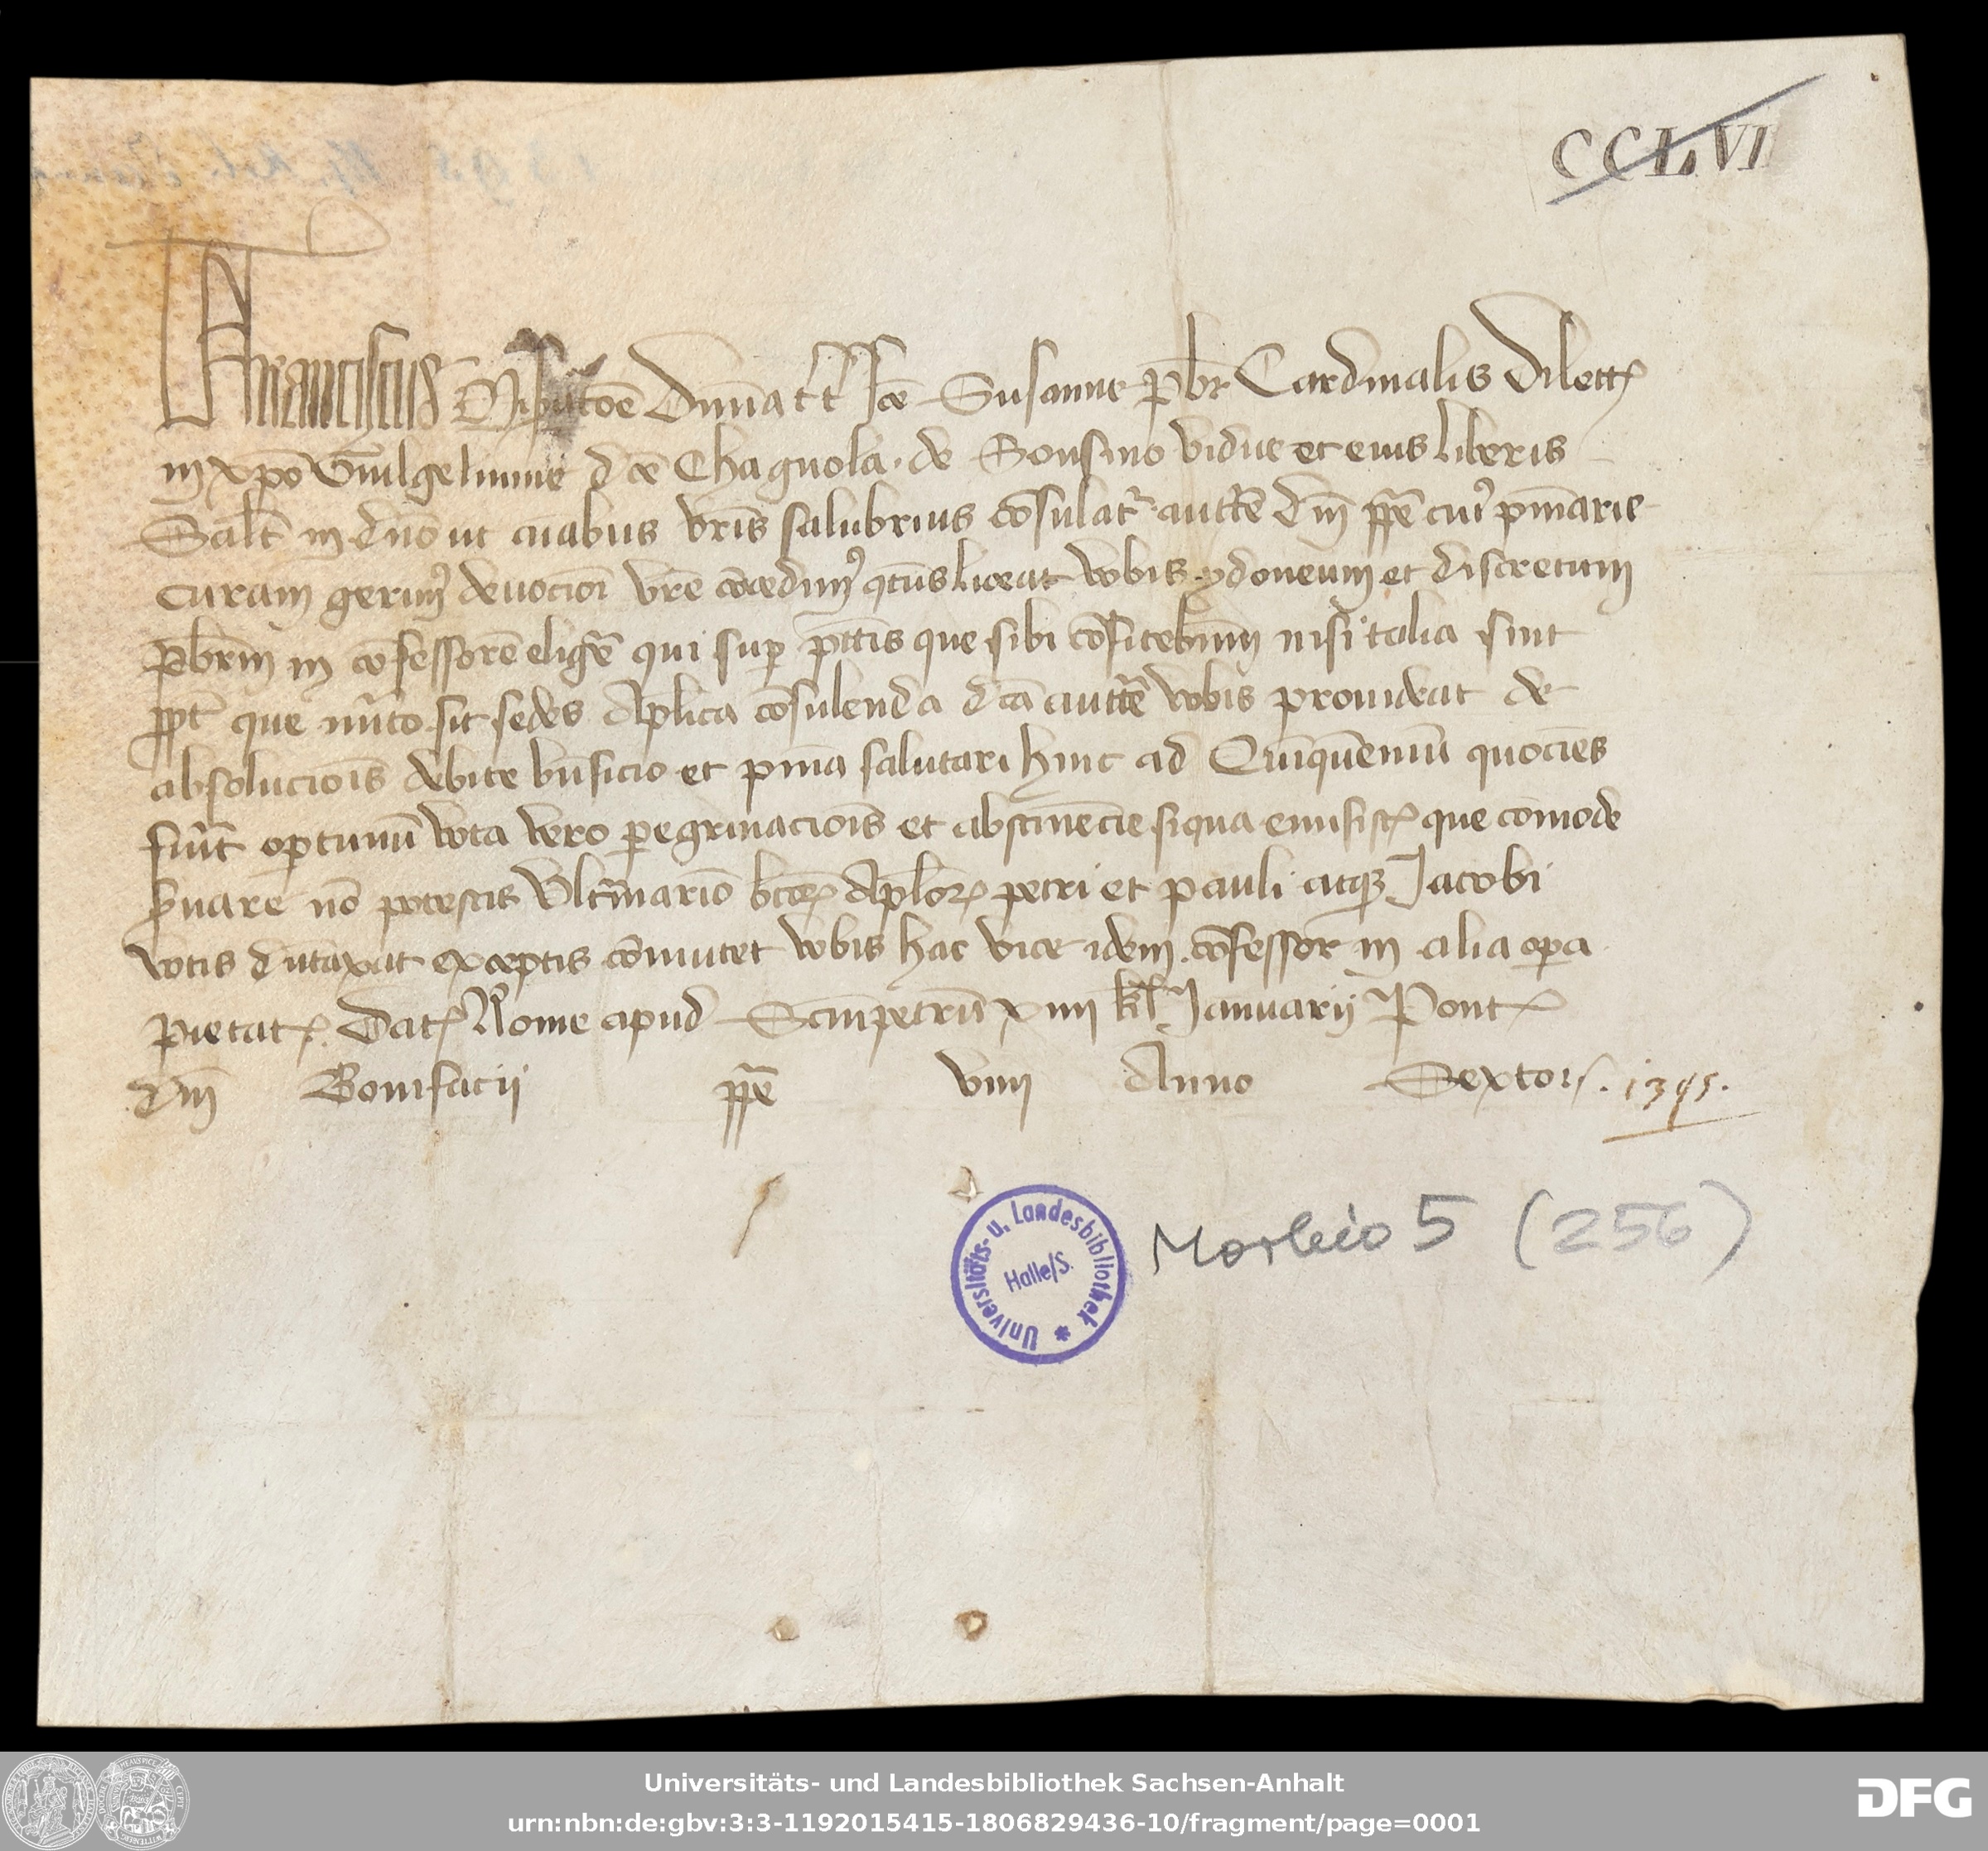 CCLVI
Franciscus Mis͞atōe Diuīa tt̄ s͞ce Susanne p̄br Cardinalis Dilectꝭ
in xp̄o Guilgelmine d͞ce Chagnola · de Sonsino vidue et eius liberis
Salt̄ in dn̄o ut aīabus vr̄is salubrius cōsulatᷣ auctt̄e dn̄i pp̄e cuiꝰ pn̄iarie
curam gerimꝰ deuocioī vr̄e cōcedimꝰ qt̄us liceat vobis ydoneum et discretum
p̄brm in cōfessorē eligēꝛ qui suꝑ pctīs que sibi cōfitebimī nisi talia sint
ꝓpt̄ que mīto sit sedes Aplīca cōsulenda dc̄a auctt̄e vobis prouideat de
absolucioīs debite bn̄ficio et pn̄ia salutari hinc ad Quīquēniū quocies
fuīt oportunū vota vero peregrinacioīs et abstinēcie siqua emisistꝭ que cōmode
ẜuare nō potestis Ultᵃmarīo bt̄oꝝ Apl̄oꝝ petri et pauli atqꝫ Jacobi
votis dūtaxat exceptis cōmutet vobis hac vice idem cōfessor in alia oꝑa
pietatꝭ. Datꝭ Rome apud Sc̄mpetrū xiiii kl̄ Januarij Pontꝭ
dn̄i Bonifacij pp̄e viiii Anno Sexto
1395.
Morbio 5 (256)
Universitäts- u. Landesbibliothek
Halle/S.
Universitäts- und Landesbibliothek Sachsen-Anhalt
urn:nbn:de:gbv:3:3-1192015415-1806829436-10/fragment/page=0001
DFG